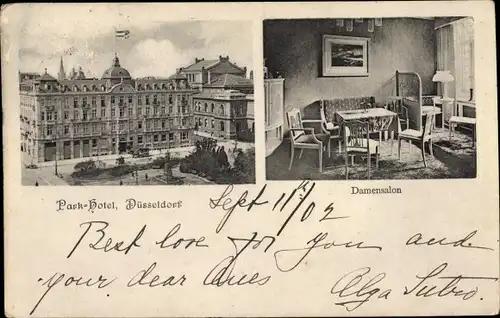 Park-Hotel, Düsseldorf
Damensalon
Sept 11th/02
Best love for you and
your dear Ones
Olga Sutro.